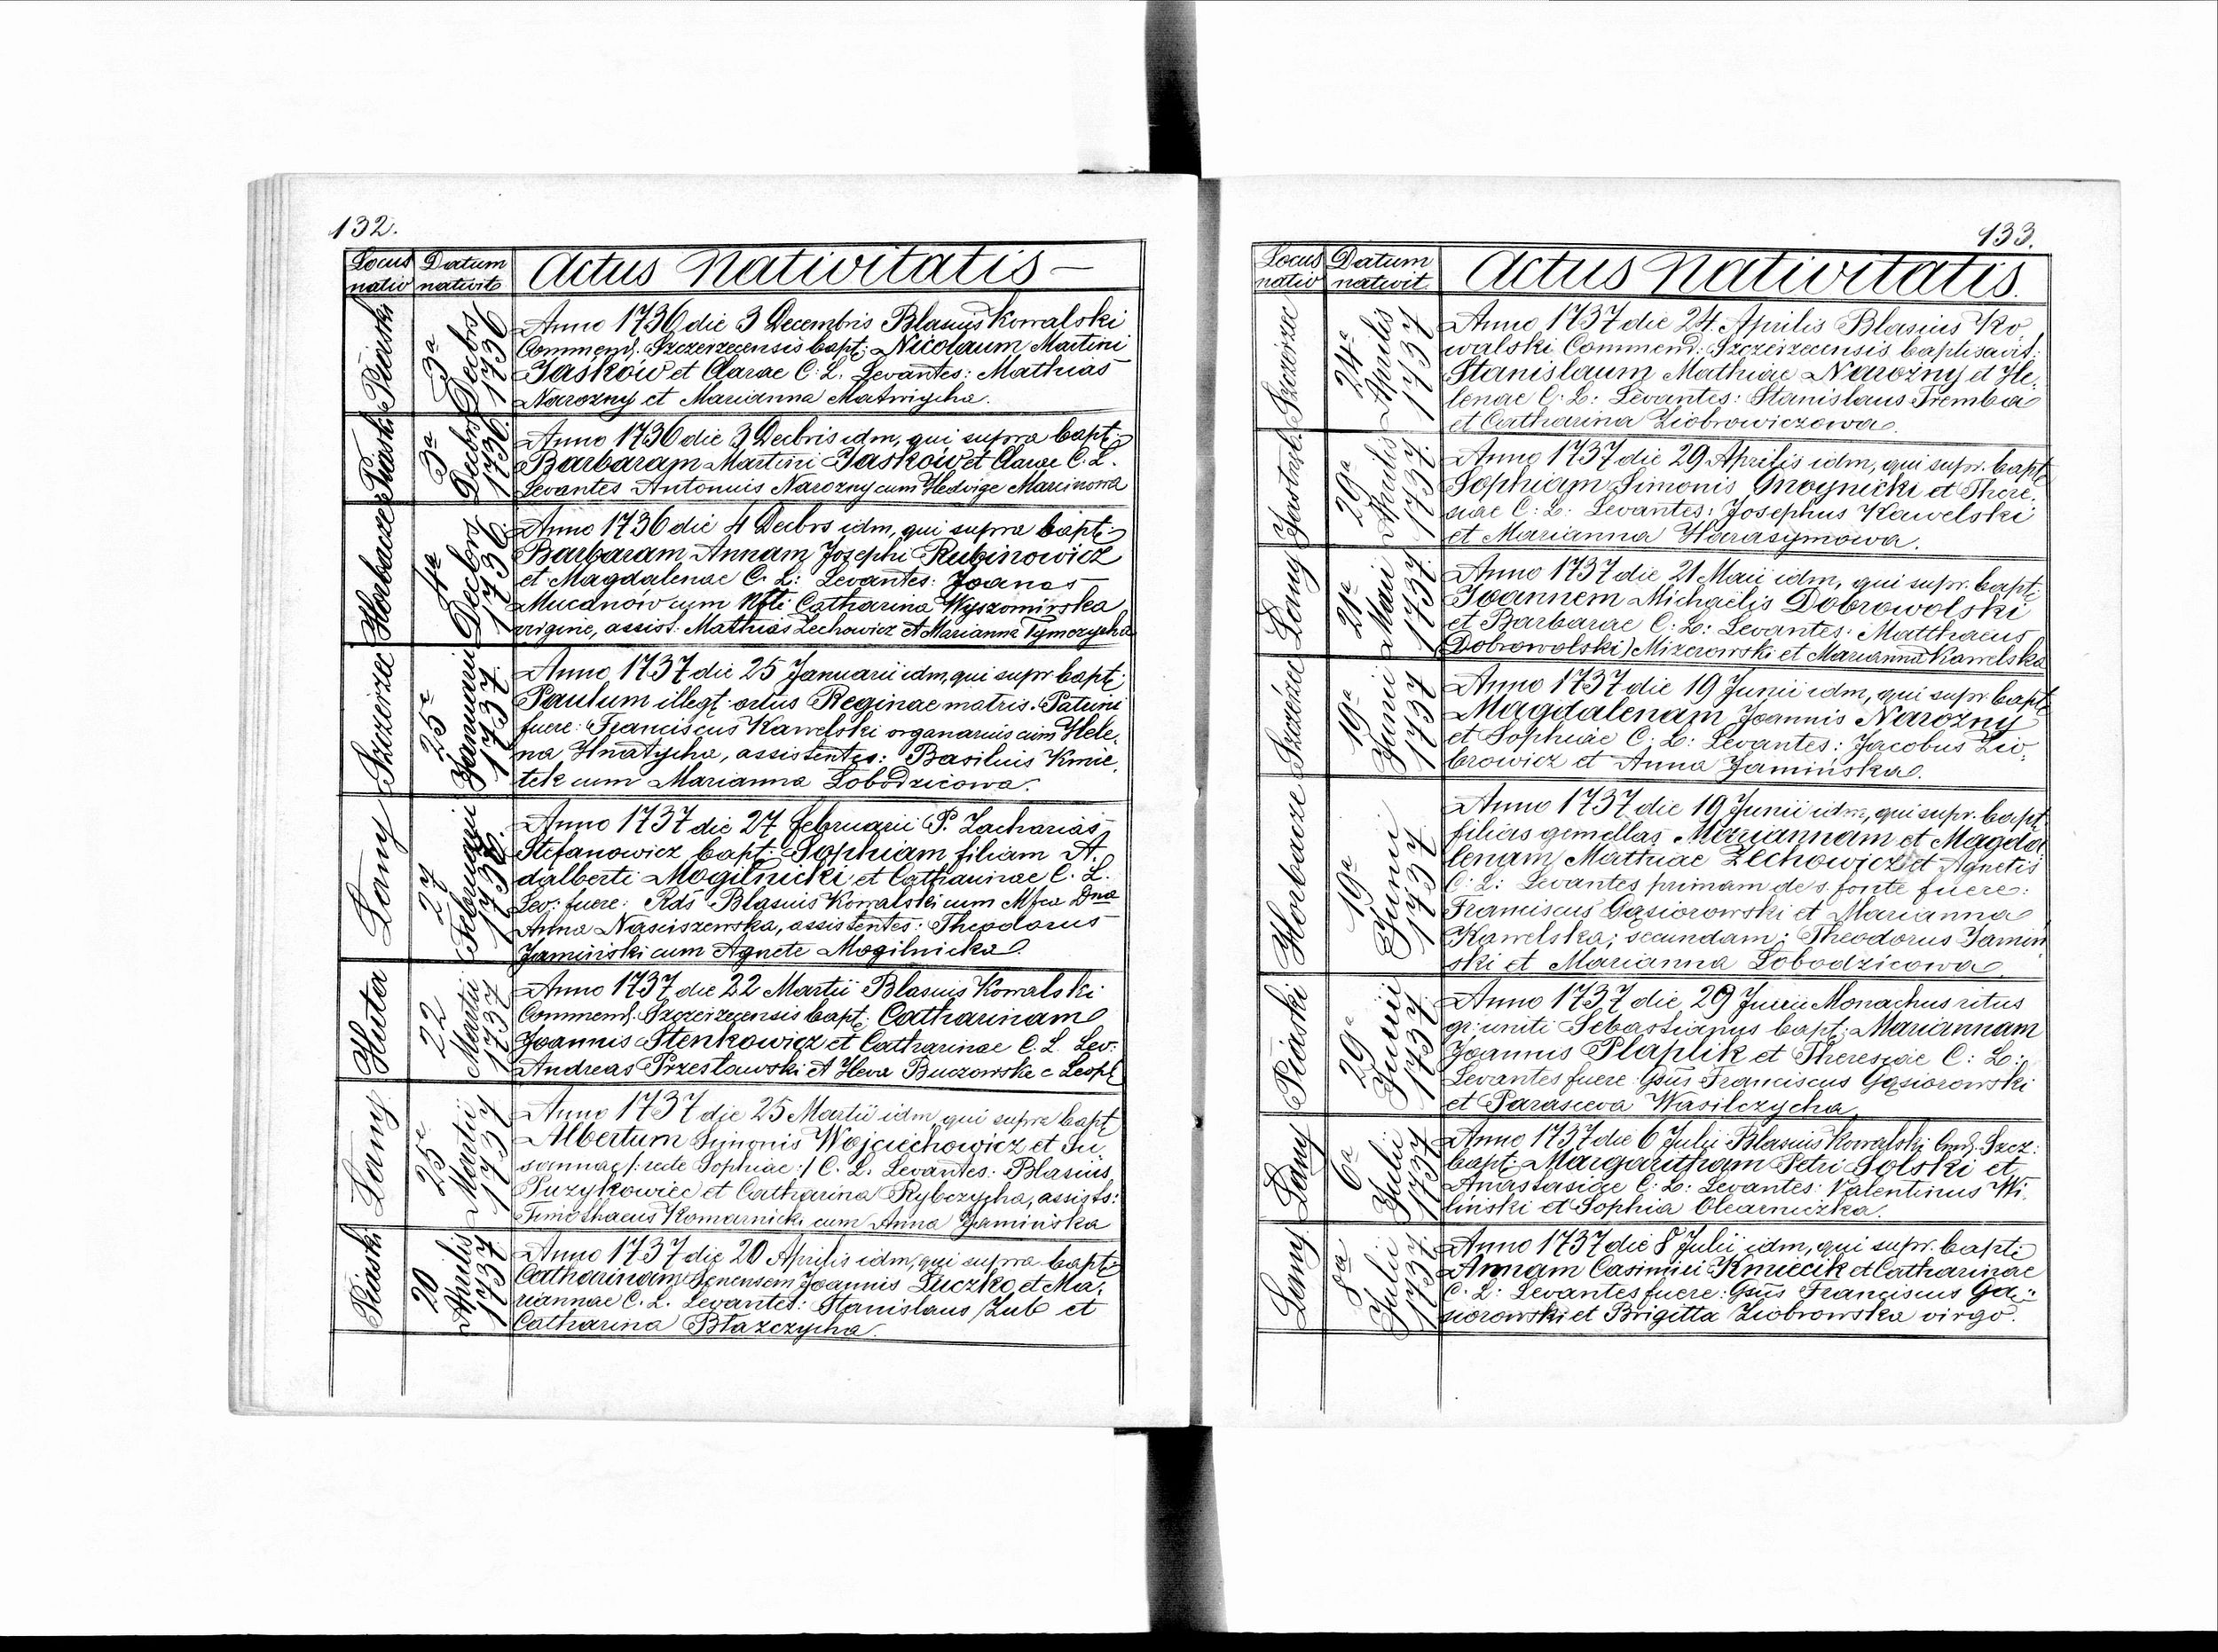 132.
Locus nativ
Datum nativit
Actus Nativitatis —
Piaski
3a Decbrs 1736
Anno 1736 die 3 Decembris Blasius Kowalski
Commend. Szczerzecensis bapt: Nicolaum Martini
Jasków et Clarae C. L. Levantes: Mathias
Narozny et Marianna Matwiycha.
Piaski
3a Decbrs 1736
Anno 1736 die 3 Decbris idm, qui supra bapt:
Barbaram Martini Jasków et Clarae C. L.
Levantes Antonius Narozny cum Hedvige Marcinowa
Horbacze
4a Decbrs 1736
Anno 1736 die 4 Decbrs idm, qui supra bapt:
Barbaram Annam Josephi Rubinowicz
et Magdalenae C. L: Levantes: Joanes
Mucanów cum Catharina Wyszomirska
virgine, assist: Mathias Zechowicz et Marianna Tymczycha
Szczerzec
25a Januarii 1737
Anno 1737 die 25 Januarii idm, qui supr. bapt:
Paulum illegt: ortus Reginae matris. Patrini
fuere: Franciscus Kawelski organarius cum Hele-
na Hnatycha, assistentes: Basilius Kmie-
tek cum Marianna Lobodzicowa.
Lany
27 Februarii 1737.
Anno 1737 die 27 februarii P. Zacharias
Stefanowicz bapt: Sophiam filiam A-
dalberti Mogilnicki et Catharinae C. L.
Lev: fuere: Rds Blasius Kowalski cum Mfca Dna
Anna Nasciszewska, assistentes: Theodorus
Jamiński cum Agnete Mogilnicka.
Huta
22 Martii 1737
Anno 1737 die 22 Martii Blasius Kowalski
Commend. Szczerzecensis bapt: Catharinam
Joannis Stenkowicz et Catharinae C. L. Lev:
Andreas Przestawski et Heva Buczowska c Leopl
Lany
25a Martii 1737
Anno 1737 die 25 Martii idm, qui supra bapt
Albertum Symonis Wojciechowicz et Su-
sannae /: recte Sophiae :/ C. L. Levantes: Blasius
Puzykowiec et Catharina Rybczycha, assists:
Timothaeus Komarnicki cum Anna Jamińska
Piaski
20 Aprilis 1737
Anno 1737 die 20 Aprilis idm, qui supra bapt:
Catharinam Senensem Joannis Luczko et Ma-
riannae C. L. Levantes: Stanislaus Zub et
Catharina Błażczycha.
133.
Locus nativ
Datum nativit
Actus Nativitatis.
Szczerzec
24a Aprilis 1737
Anno 1737 die 24. Aprilis Blasius Ko-
walski Commend: Szczerzecensis baptisavit:
Stanislaum Mathiae Narożny et He-
lenae C. L: Levantes: Stanislaus Tremba
et Catharina Ziobrowiczowa.
29a Aprilis 1737.
Anno 1737 die 29 Aprilis idm, qui supr. bapt
Sophiam Simonis Gnoynicki et There-
siae C: L: Levantes: Josephus Kawelski
et Marianna Harasymowa.
Lany
21a Maii 1737
Anno 1737 die 21 Maii idm, qui supr. bapt:
Joannem Michaëlis Dobrowolski
et Barbarae C: L: Levantes: Matthaeus
Dobrowolski) Mizerowski et Marianna Kawelska
Szczérzec
19a Junii 1737
Anno 1737 die 19 Junii idm, qui supr. bapt
Magdalenam Joannis Narozny
et Sophiae C: L: Levantes: Jacobus Zio-
browicz et Anna Jamińska.
Horbacze
19a Junii 1737
Anno 1737 die 19 Junii idm, qui supr. bapt.
filias gemellas Mariannam et Magda-
lenam Mathiae Zechowicz et Agnetis
C: L: Levantes primam de s. fonte fuere:
Franciscus Gąsiorowski et Marianna
Kawelska; secundam: Theodorus Jamiń
ski et Marianna Lobodzicowa.
Piaski
29a Junii 1737
Anno 1737 die 29 Junii Monachus ritus
gr: uniti Sebastianus bapt: Mariannam
Joannis Plaplik et Theresiae C: L:
Levantes fuere: Gsus Franciscus Gąsiorowski
et Parasceva Wasilczycha.
Lany
6a Julii 1737
Anno 1737 die 6 Julii Blasius Kowalski Cmd. Szcz:
bapt: Margaritham Petri Solski et
Anastasiae C: L: Levantes: Valentinus Wi-
liński et Sophia Olearniczka.
Lany
8a Julii 1737
Anno 1737 die 8 Julii idm, qui supr. bapti
Annam Casimiri Kmiecik et Catharinae
C. L: Levantes fuere: Gsus Franciscus Gą-
siorowski et Brigitta Ziobrowska virgo.